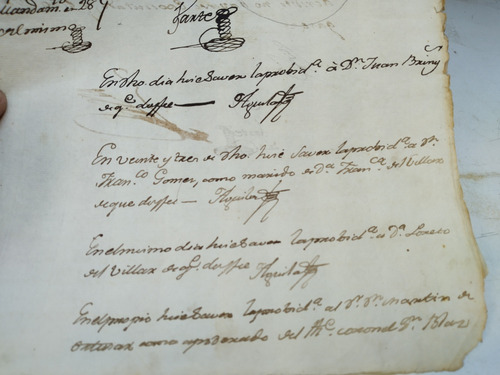 parte
el mismo
En dho dia hice saver la probid.ª à Dn Juan Briuis
de q.e doy fee — Aguilar
En veinte y tres de dho hice saver la probid.ª a Dn
Fran.co Gomez, como marido de D.ª Fran.ca del Villar
de que doy fee — Aguilar
En el mismo dia hice saver la probid.ª a D.ª Loreto
del Villar de q.e doy fee Aguilar
En el propio hice saver la probid.ª al Sr. Dr. Martin de
Ortuzar como apoderado del The. coronel Dn Blas